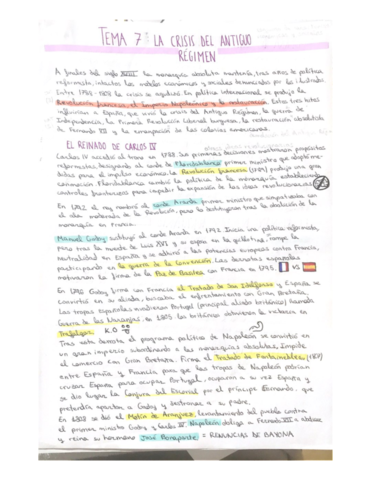 TEMA 7: LA CRISIS DEL ANTIGUO
RÉGIMEN
A finales del siglo XVIII, la monarquía absoluta mantenía, tras años de política
reformista, intactos los moldes económicos y sociales denunciados por la ilustrada.
Entre 1788-1808 la crisis se agudizó. En política internacional se produjo la
Revolución francesa, el imperio Napoleónico y la restauración. Estos tres hitos
a España, que vivió la crisis del Antiguo Régimen, la guerra de
Independencia, la Primera Revolución Liberal burguesa, la restauración absolutista
de Fernando VII y la emancipación de las colonias americanas.
EL REINADO DE CARLOS IV
Carlos IV accedió al trono en 1788. Sus primeras decisiones mostraron propósitos
reformistas, designando al conde de Floridablanca primer ministro que adoptó
didas para el impulso económico. La Revolución francesa (1789) produjo una gran
conmoción. Floridablanca cambió la política de la monarquía estableciendo
controles fronterizos para impedir la expansión de las ideas revolucionarias
En 1792 el rey nombró al conde Aranda primer ministro que simpatizaba con
el ala moderada de la Revolución, pero lo destituyeron tras la abolición de la
monarquía en Francia.
Manuel Godoy sustituyó al conde Aranda en 1792. Inicia una política reformista,
pero tras la muerte de Luis XVI y su esposa en la guillotina, rompe la
neutralidad en España y se adhirió a las potencias europeas contra Francia,
participando en la guerra de la Convención. Las derrotas españolas
motivaron la firma de la Paz de Basilea con Francia en 1795. VS
En 1796 Godoy firma con Francia el Tratado de San Ildefonso y España se
convirtió en su aliado, buscando el enfrentamiento con Gran Bretaña.
Las tropas españolas invadieron Portugal (principal aliado británico) llamada
Guerra de las Naranjas, en 1805 los británicos obtuvieron la victoria en
Trafalgar. K.O
Tras esta derrota el programa político de Napoleón se convirtió en
un gran imperio subordinando a las monarquías absolutas, impide
el comercio con Gran Bretaña. Firma el Tratado de Fontainebleau (1807)
entre España y Francia para que las tropas de Napoleón podrían
cruzar España para ocupar Portugal, ocuparon a su vez España y
se dio lugar la Conjura del Escorial por el príncipe Fernando que
pretendía apartar a Godoy y destronar a su padre.
En 1808 se dio el Motín de Aranjuez, levantamiento del pueblo contra
el primer ministro Godoy y Carlos IV. Napoleón obliga a Fernando VII a abdicar
y reina su hermano José Bonaparte = RENUNCIAS DE BAYONA